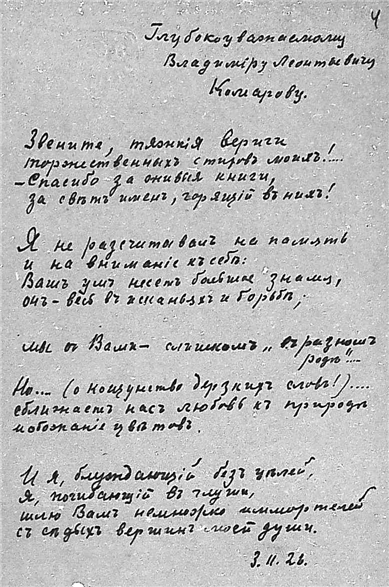 4
Глубокоуважаемому
Владиміру Леонтьевичу
Комарову.
Звените, тяжкія вериги
торжественныхъ стиховъ моихъ!....
-Спасибо за живыя книги,
за свѣтъ имен, горящій въ нихъ!
Я не разсчитывалъ на память
и на вниманіе къ себѣ:
Вашъ умъ несетъ большое знамя,
онъ-весь въ исканьяхъ и борьбѣ,
мы съ Вами- слишкомъ „въ разномъ
родѣ"....
Но.... (о кощунство дерзкихъ словъ!)....
сближаетъ насъ любовь къ природѣ
и обожаніе цвѣтовъ.
И я, блуждающій безъ цѣлей,
я, погибающій въ глуши,
шлю Вамъ немножко иммортелей
съ сѣдыхъ вершинъ моей души.
3.II.26.